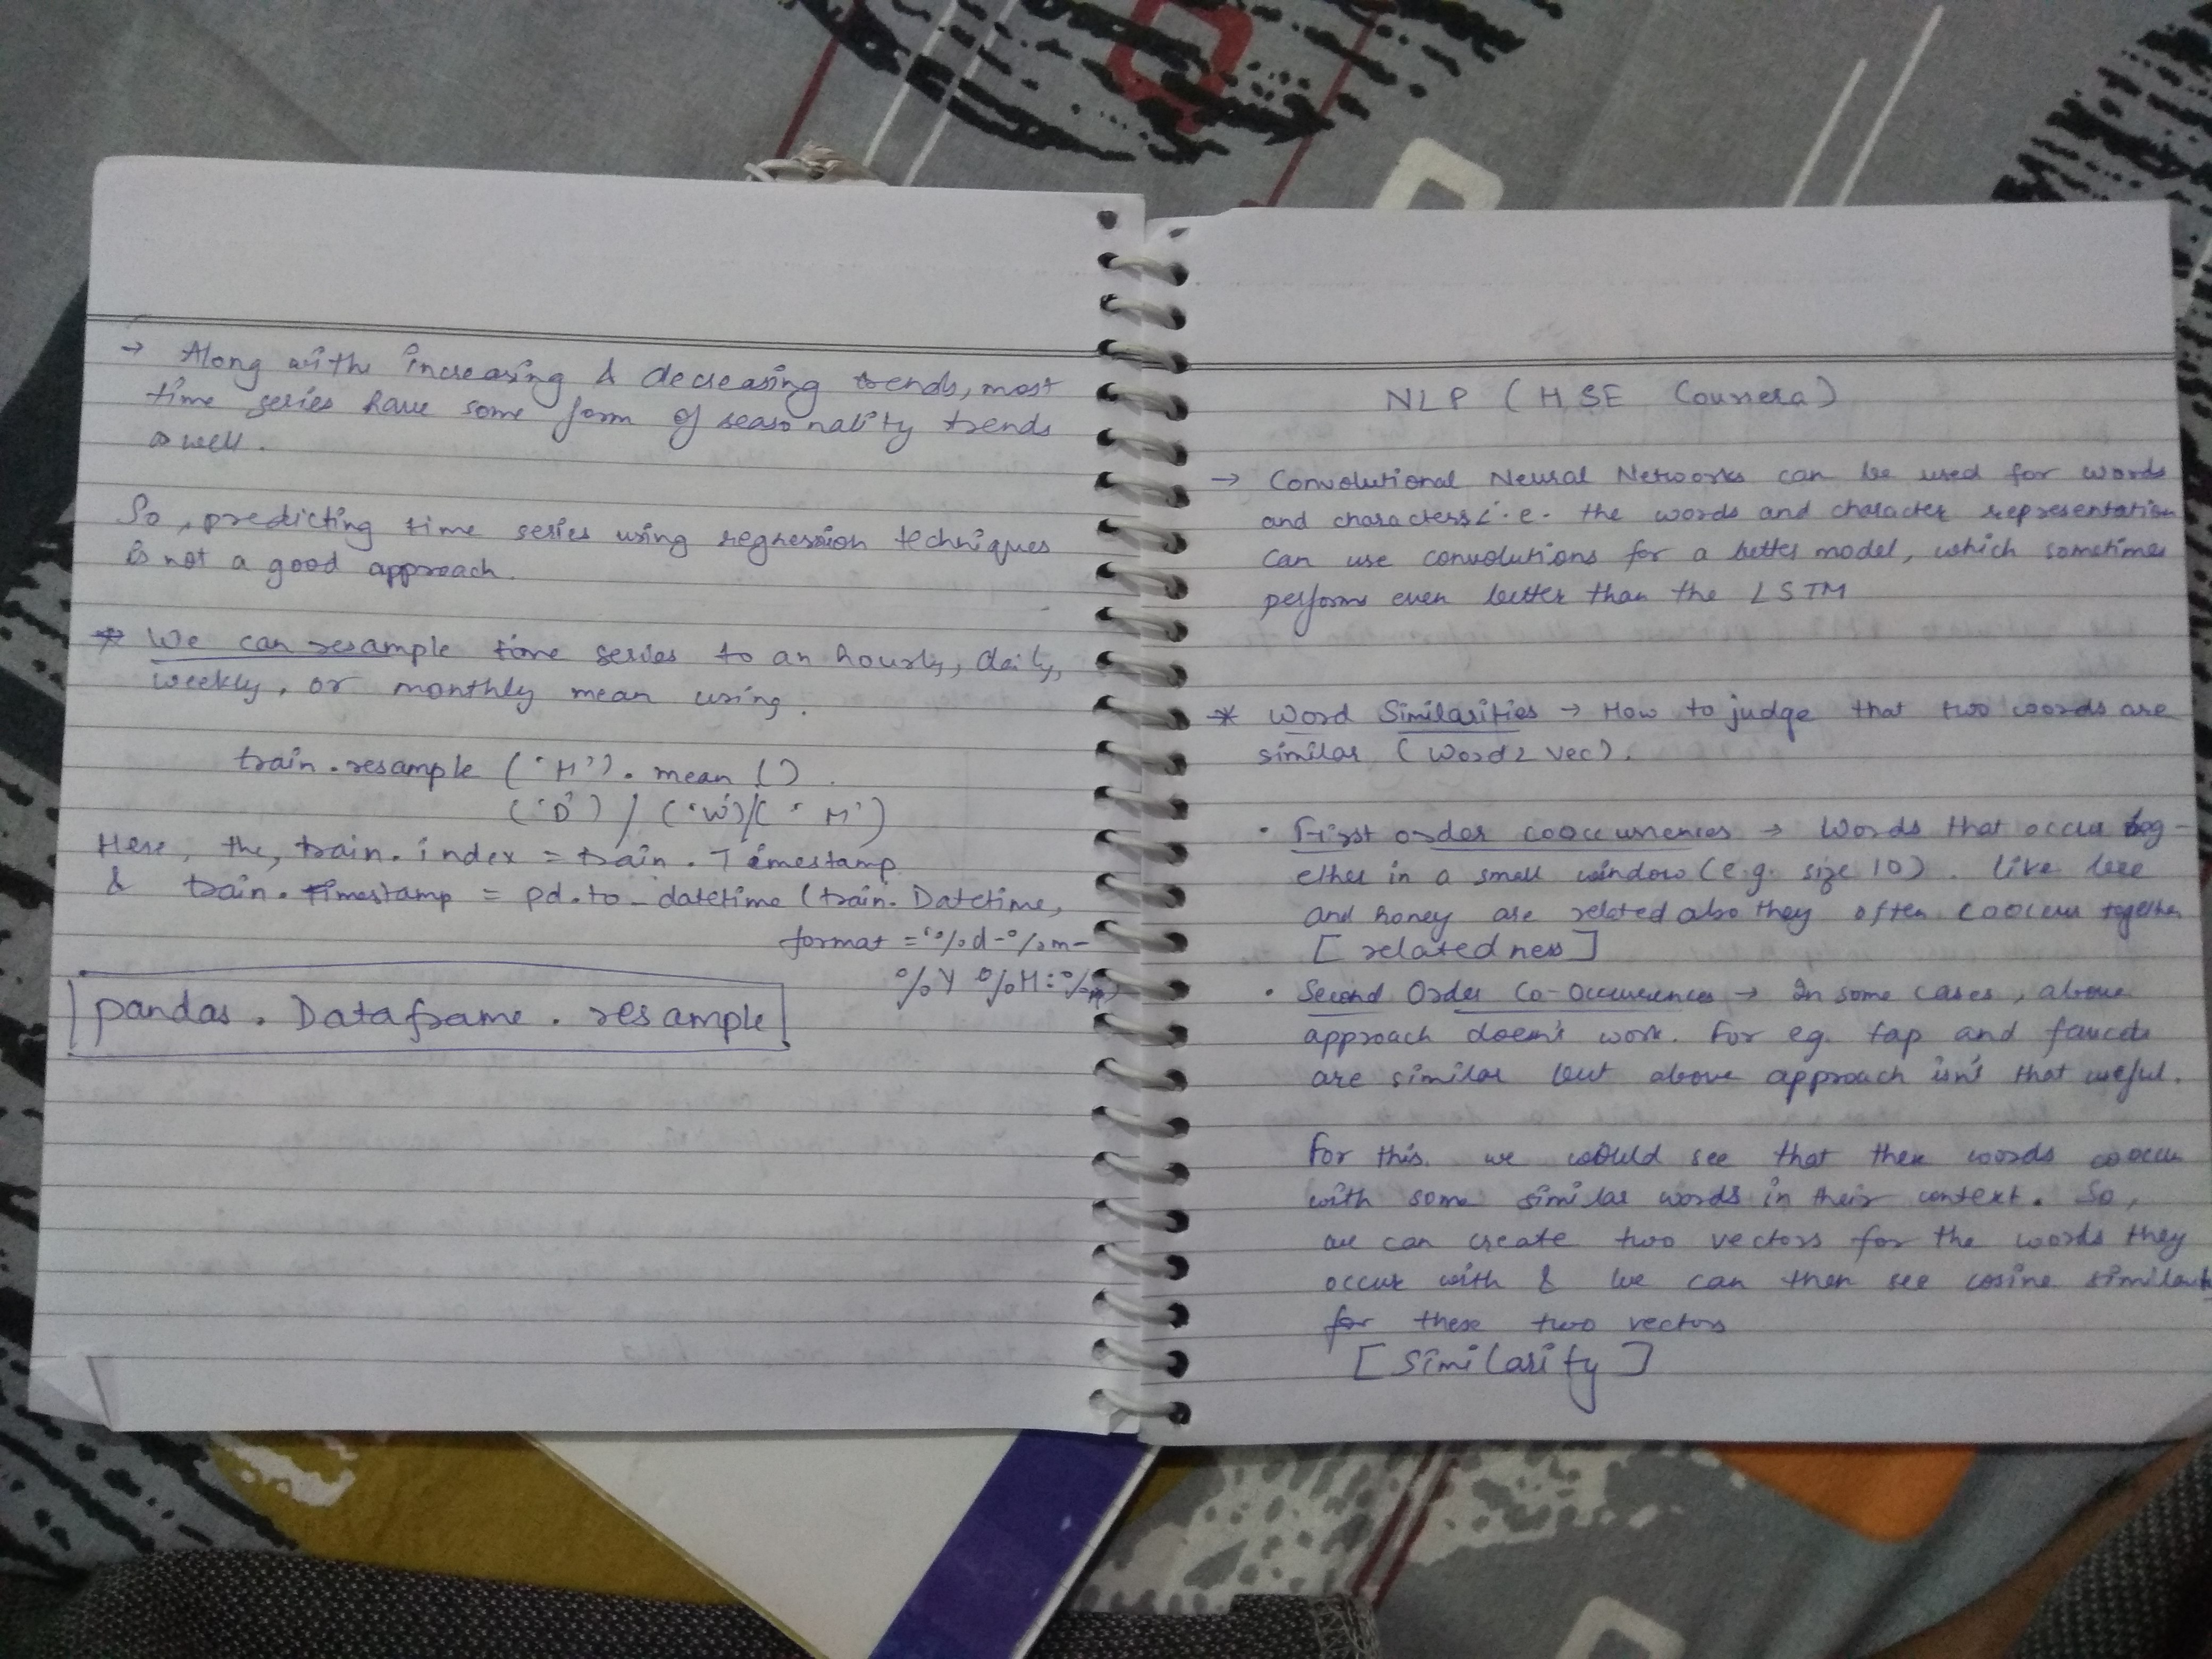 → Along with increasing & decreasing trends, most
time series have some form of seasonality trends
as well.
So, predicting time series using regression techniques
is not a good approach.
* We can resample time series to an hourly, daily,
weekly, or monthly mean using.
train.resample ('H').mean().
('D') / ('W')/('M')
Here, the, train.index = train.Timestamp
& train.Timestamp = pd.to_datetime (train.Datetime,
format = '%d-%m-
%Y %H:%
pandas.Dataframe.resample
NLP (HSE Coursera)
→ Convolutional Neural Networks can be used for words
and characters i.e. the words and character representation
can use convolutions for a better model, which sometimes
performs even better than the LSTM
* Word Similarities → How to judge that two words are
similar (Word2Vec).
• First order cooccurrences → Words that occur tog-
ether in a small window (e.g. size 10). like bee
and honey are related also they often cooccur together
[relatedness]
• Second Order Co-Occurrences → In some cases, above
approach doesn't work. For eg. tap and faucets
are similar but above approach isn't that useful.
For this we would see that these words cooccur
with some similar words in their context. So,
we can create two vectors for the words they
occur with & we can then see cosine similarity
for these two vectors
[Similarity]